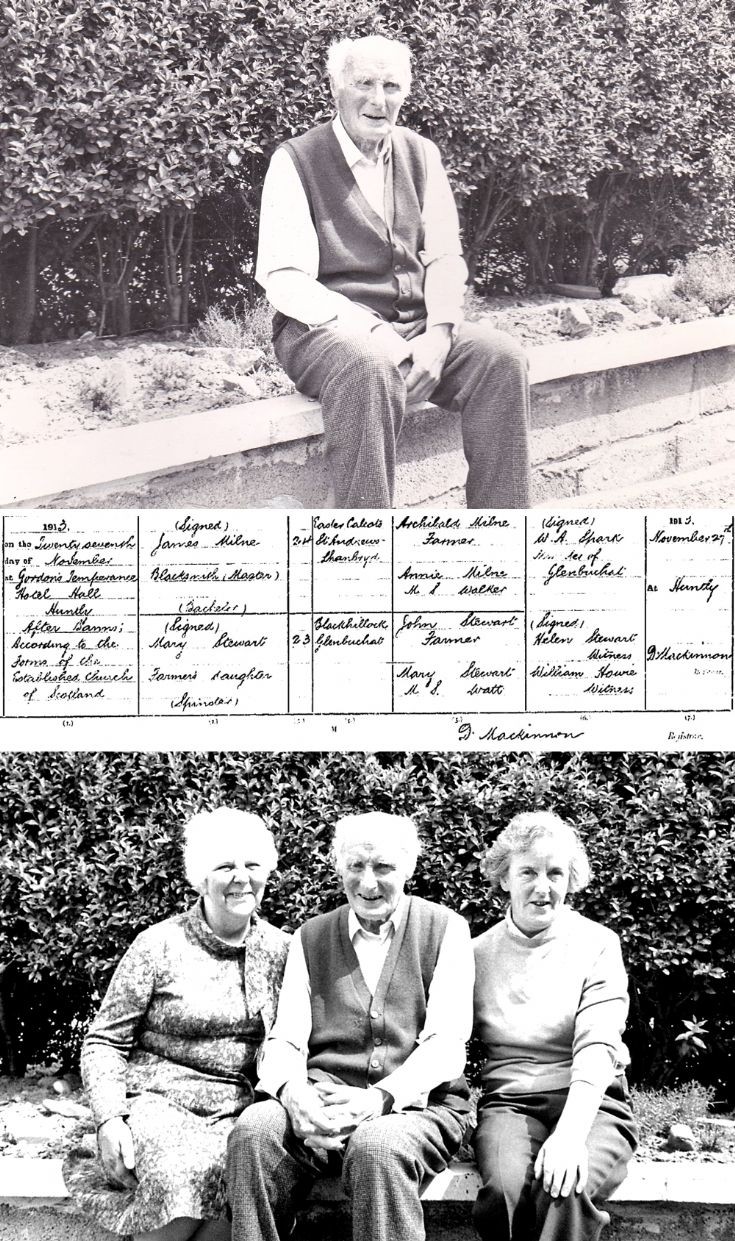 1913.
on the Twenty seventh
day of November
at Gordon's Temperance
Hotel Hall
Huntly
After Banns;
According to the
Forms of the
Established Church
of Scotland
(Signed)
James Milne
Blacksmith (Master)
(Bachelor)
(Signed)
Mary Stewart
Farmer's daughter
(Spinster)
24
23
Easter Calcots
St Andrews-
Lhanbryd
Blackhillock
Glenbuchat
Archibald Milne
Farmer
Annie Milne
M. S. Walker
John Stewart
Farmer
Mary Stewart
M. S. Watt
(Signed)
W. A. Spark
Minister of
Glenbuchat
(Signed)
Helen Stewart
Witness
William Howie
Witness
1913.
November 27th
At Huntly
D. Mackinnon
Registrar.
(1.)
(2.)
(5.)
(6.)
(7.)
M
D. Mackinnon
Registrar.